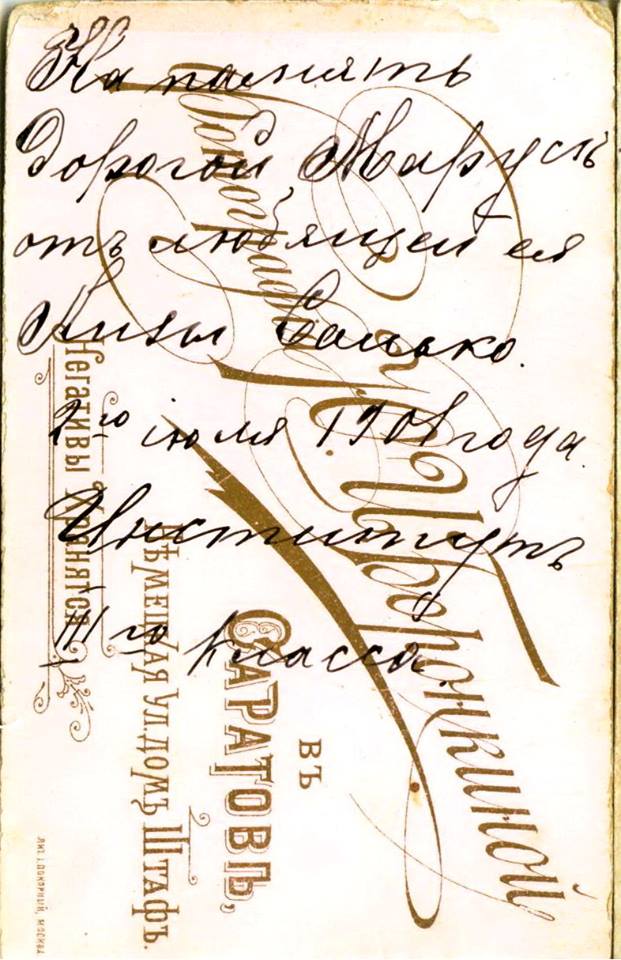 На память
Дорогой Марусѣ
отъ любящей ея
Лизы Салько.
2го іюля 1908 года.
Институтъ
III го класса.
Фотографія
ВЪ
САРАТОВѢ,
НѢМЕЦКАЯ УЛ. ДОМЪ ШТАФЪ.
Негативы хранятся.
ЛИТ. І. ПОКОРНЫЙ, МОСКВА